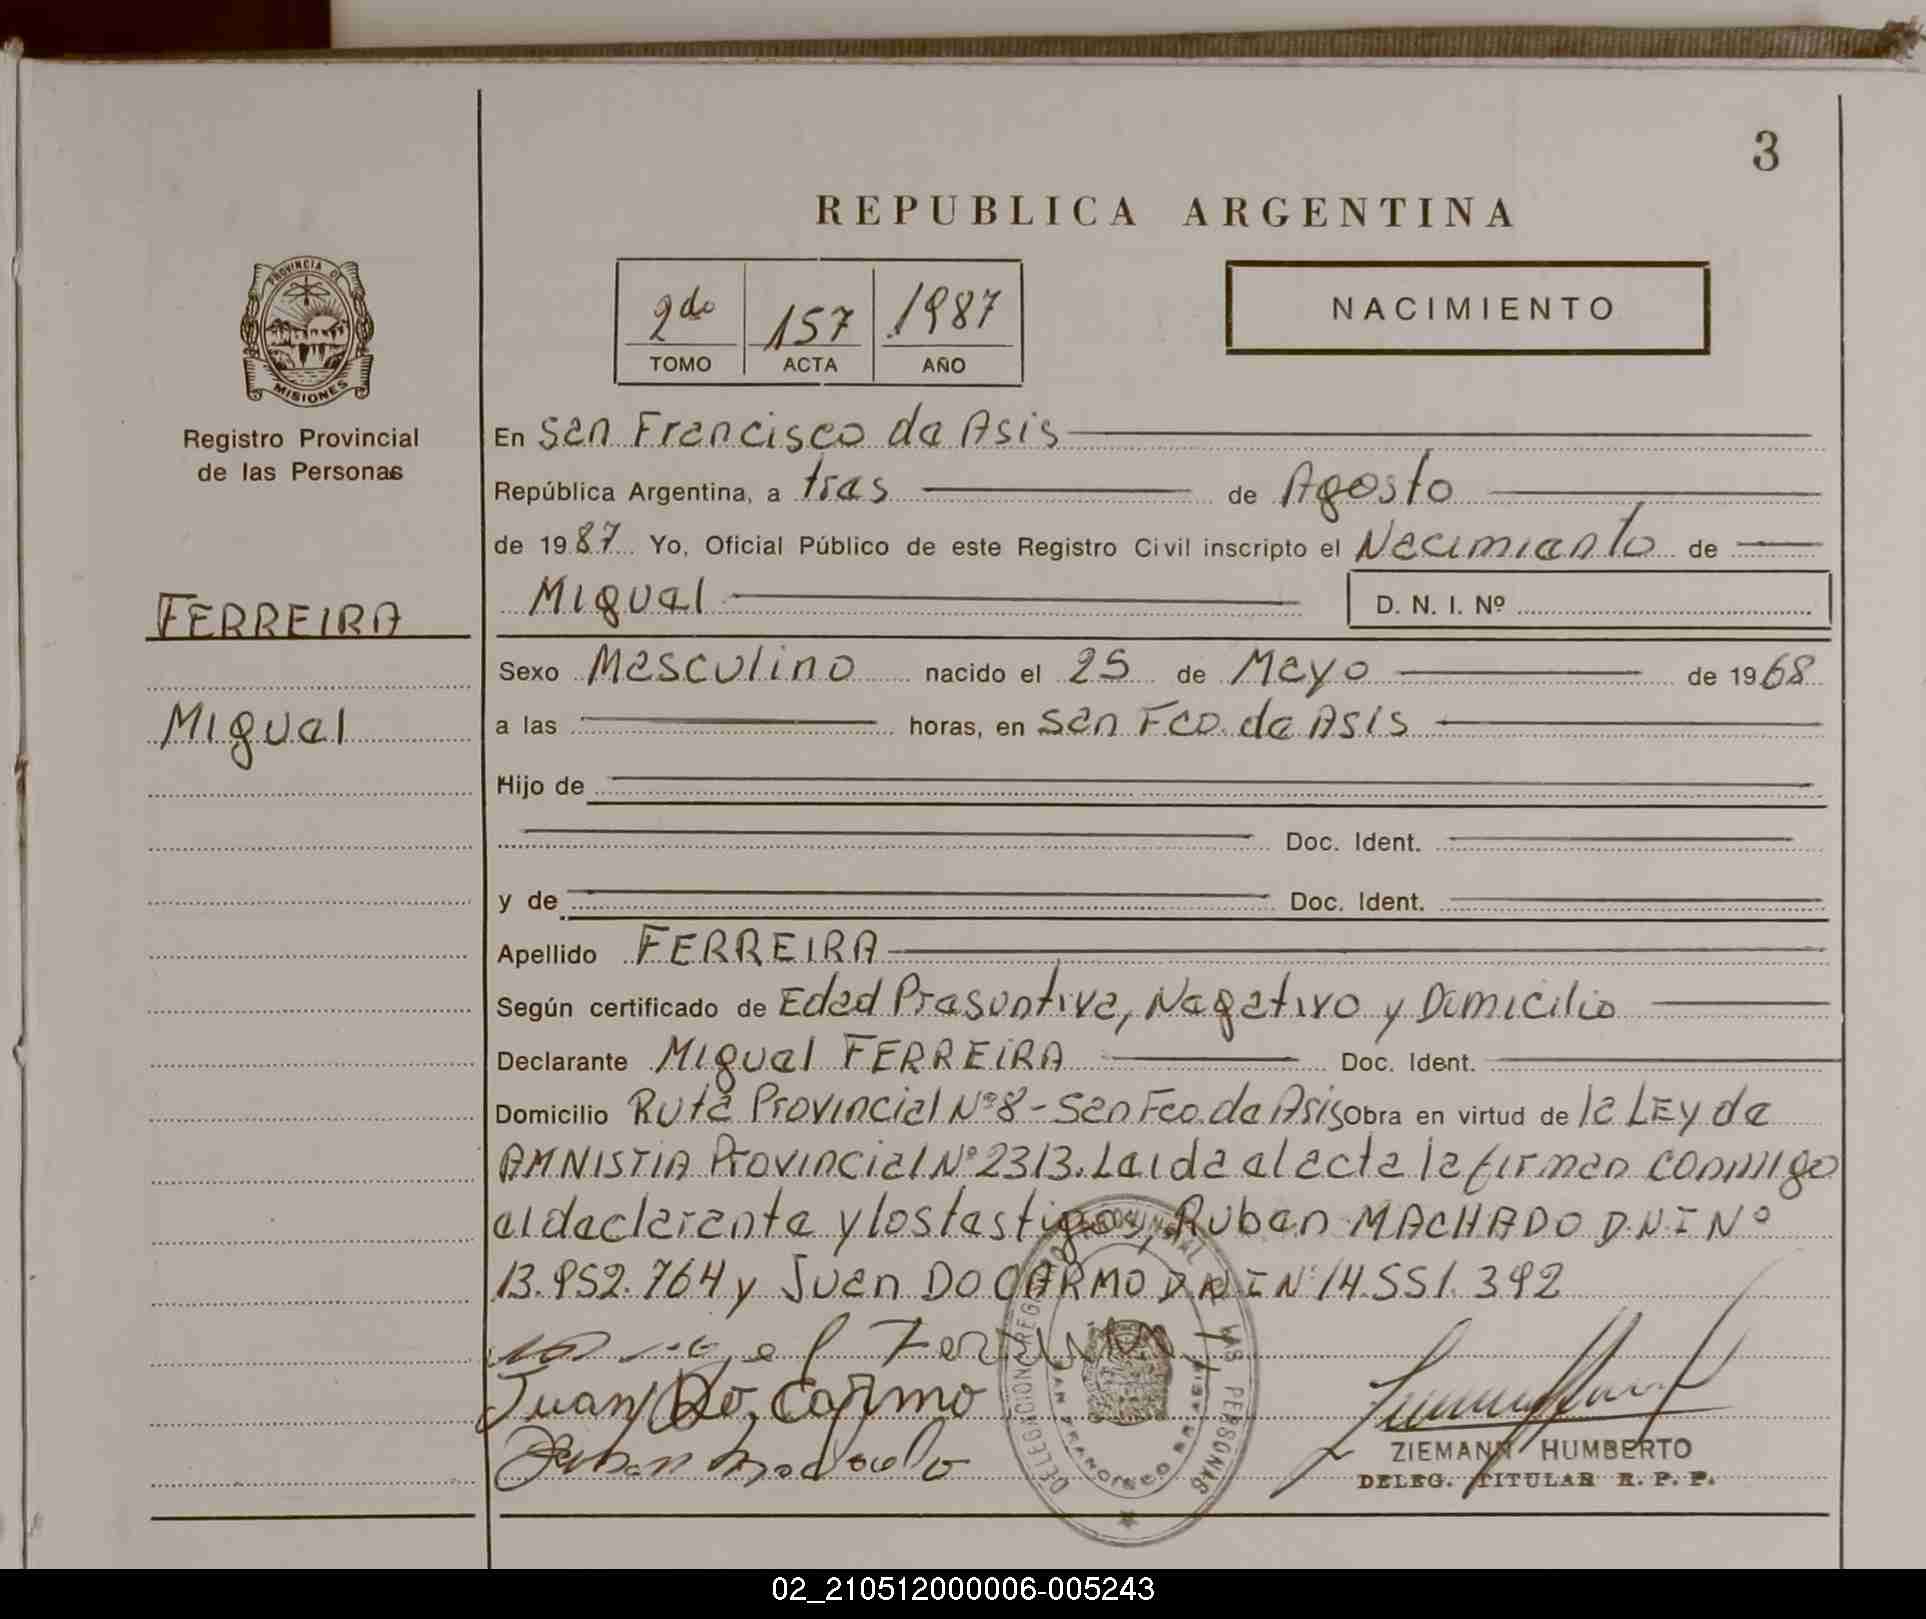 3
REPUBLICA ARGENTINA
PROVINCIA DE
MISIONES
2do 157 1987
TOMO ACTA AÑO
NACIMIENTO
Registro Provincial
de las Personas
En San Francisco de Asis
República Argentina, a tres de Agosto
de 1987. Yo, Oficial Público de este Registro Civil inscripto el Nacimiento de
Miguel D. N. I. Nº
FERREIRA
Miguel
Sexo Masculino nacido el 25 de Mayo de 1968
a las horas, en San Fco. de Asis
Hijo de
Doc. Ident.
y de Doc. Ident.
Apellido FERREIRA
Según certificado de Edad Presuntiva, Negativo y Domicilio
Declarante Miguel FERREIRA Doc. Ident.
Domicilio Ruta Provincial Nº 8 - San Fco. de Asis Obra en virtud de la LEY de
AMNISTIA Provincial Nº 2313. Leida el acta la firman conmigo
el declarante y los testigos, Ruben MACHADO D.N.I Nº
13.952.764 y Juan DO CARMO D.N.I Nº 14.551.392
Juan Do Carmo
DELEGACION REGISTRO PROVINCIAL DE LAS PERSONAS
SAN FRANCISCO DE ASIS
ZIEMANN HUMBERTO
DELEG. TITULAR R. P. P.
02_210512000006-005243